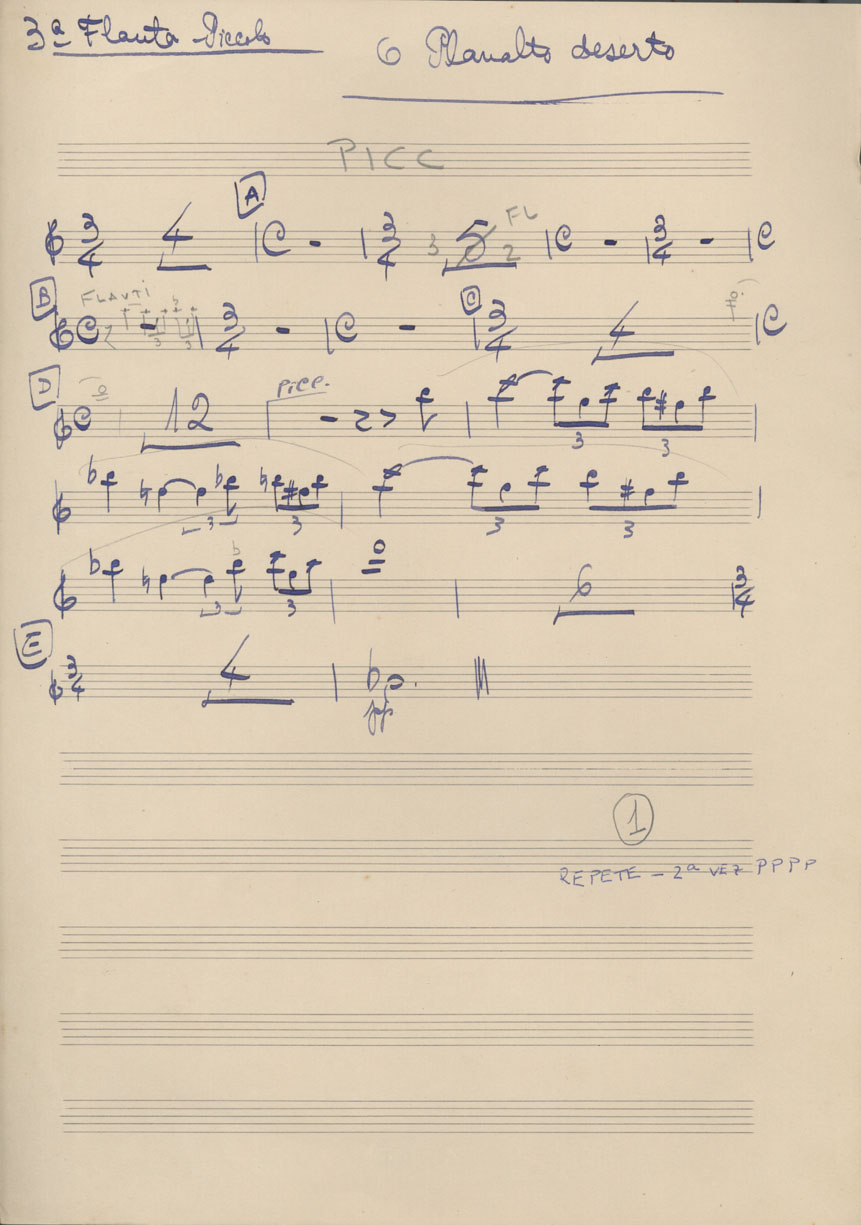 3ª Flauta Piccolo
6 Planalto deserto
PICC
A
3/4 4 C 3/4 3 5 2 FL C 3/4 C
B FLAUTI C
C 3 3 3/4 C 3/4 4 C
D C 12 picc. 3 3
3 3 3 3
3 3 6 3/4
E
3/4 4 pp
1
REPETE - 2ª VEZ PPPP